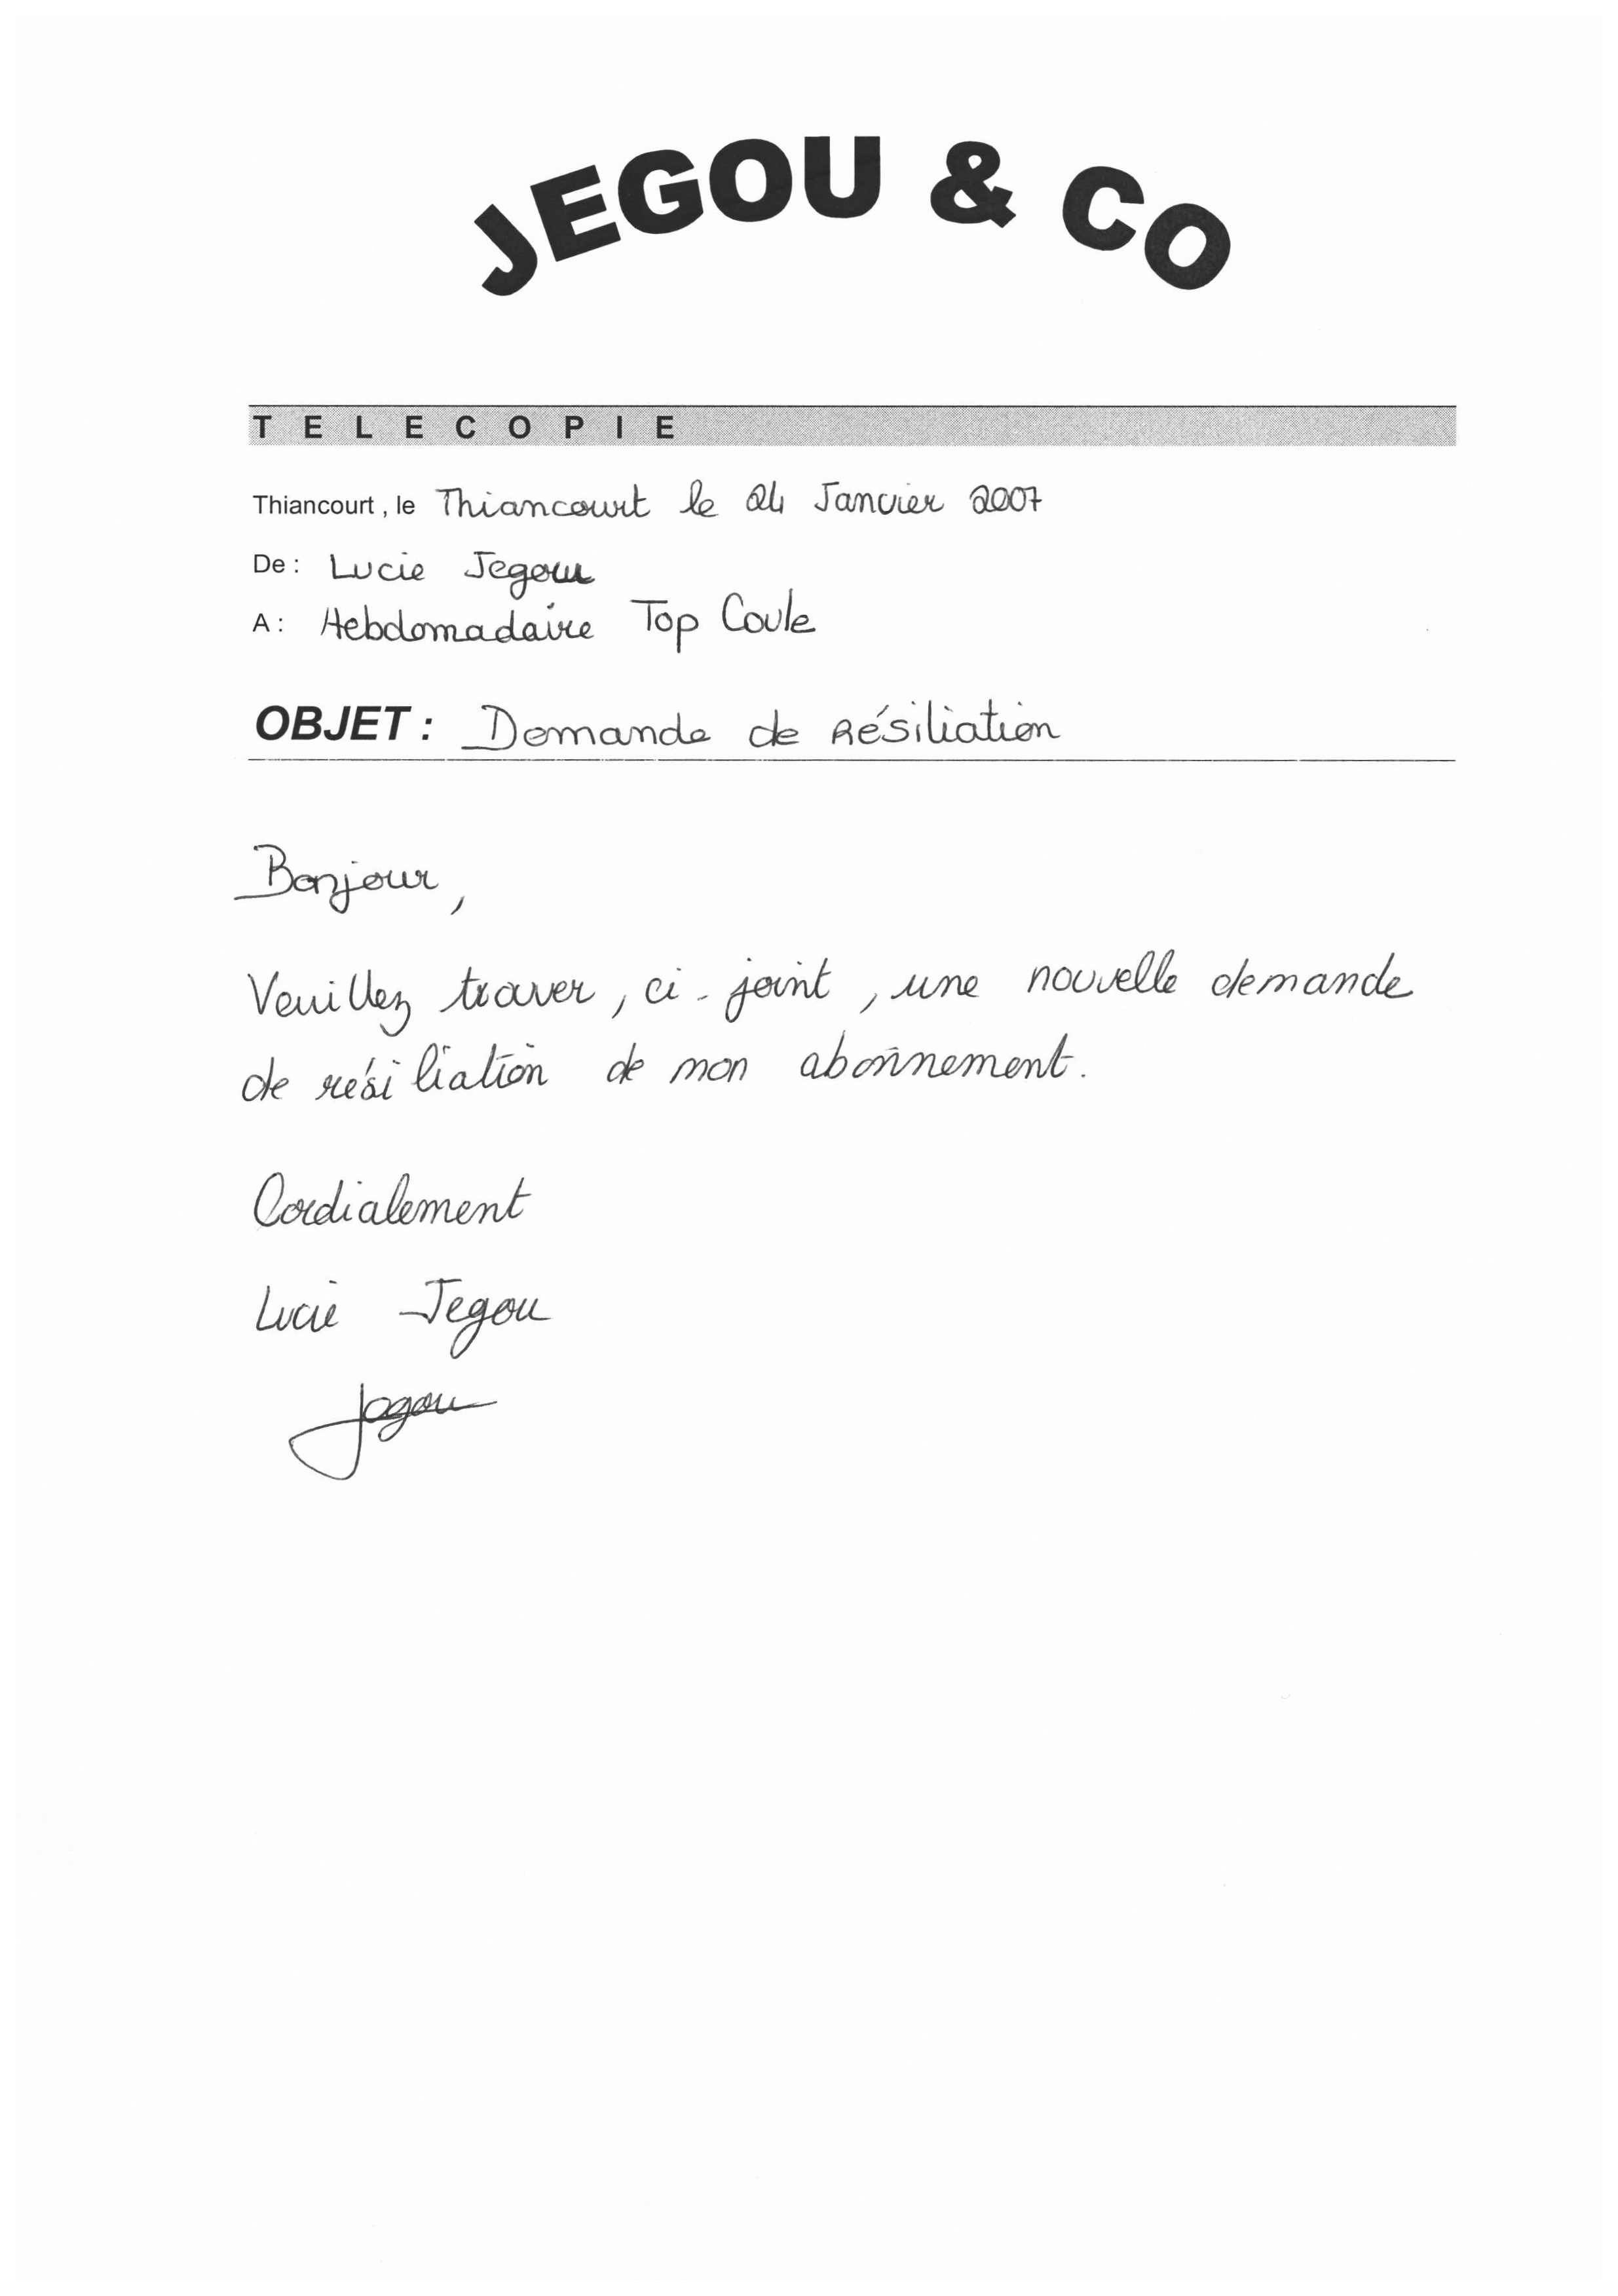 JEGOU & CO
TELECOPIE
Thiancourt, le Thiancourt le 24 Janvier 2007
De : Lucie Jegou
A : Hebdomadaire Top Coule
OBJET : Demande de Résiliation
Bonjour,
Veuillez trouver, ci-joint, une nouvelle demande
de résiliation de mon abonnement.
Cordialement
Lucie Jegou
Jegou